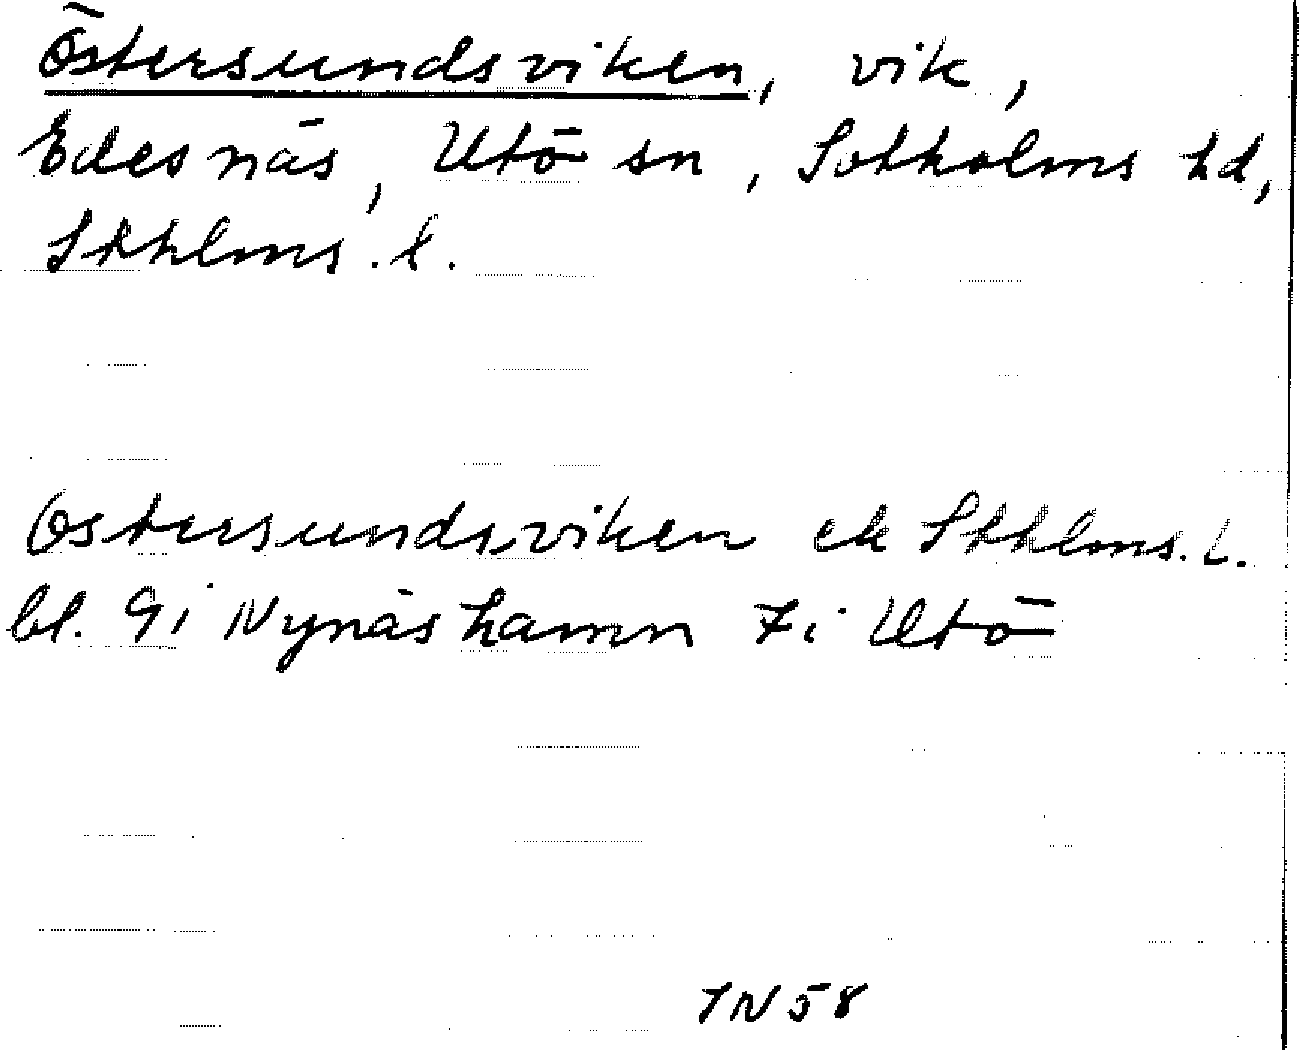 Östersundsviken, vik,
Edesnäs, Utö sn, Sotholms hd,
Stkhlms. l.
Östersundsviken ek Stkhlms. l.
bl. 9 i Nynäshamn 7 i Utö
IN 58